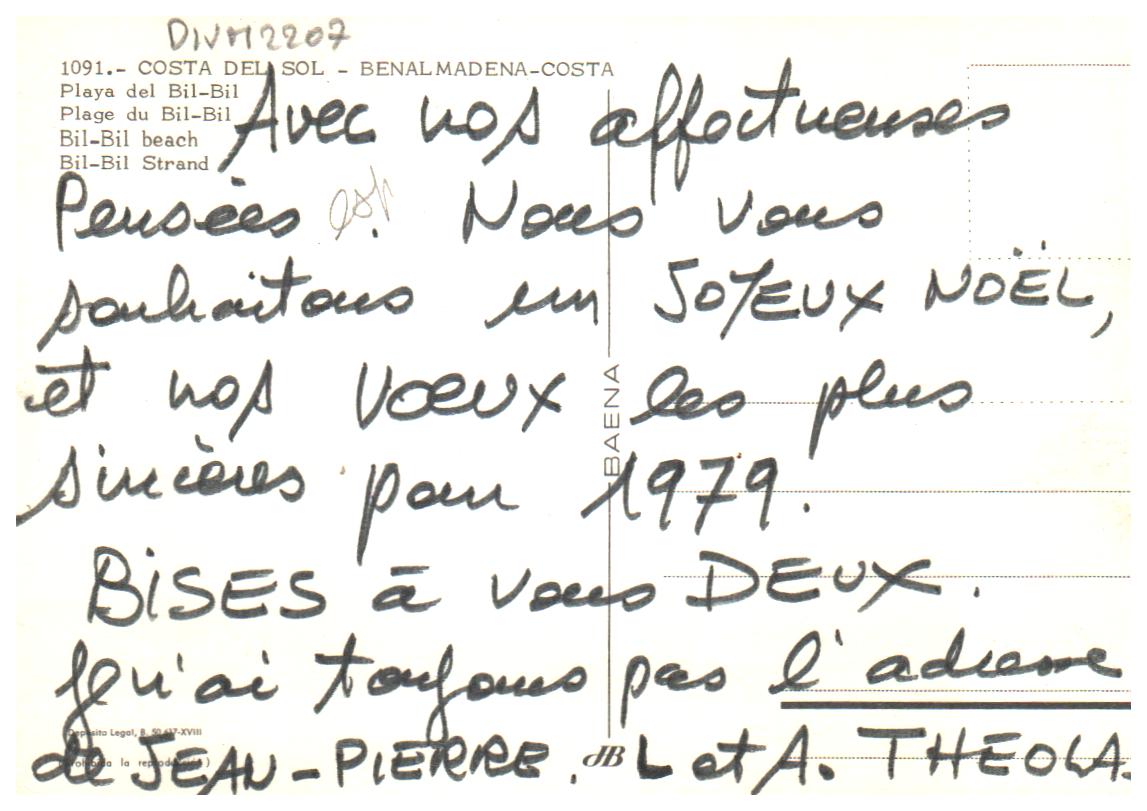 DIVM2207
1091.- COSTA DEL SOL - BENALMADENA-COSTA
Playa del Bil-Bil
Plage du Bil-Bil
Bil-Bil beach
Bil-Bil Strand
Avec nos affectueuses
Pensées. Nous vous
esp
souhaitons un JOYEUX NOËL,
et nos VŒUX les plus
sincères pour 1979.
BISES à vous DEUX.
Je n'ai toujours pas l'adresse
de JEAN-PIERRE. L et A. THEOLA.
BAENA
Depósito Legal, B. 50.617-XVIII
(Prohibida la reproducción)
JB